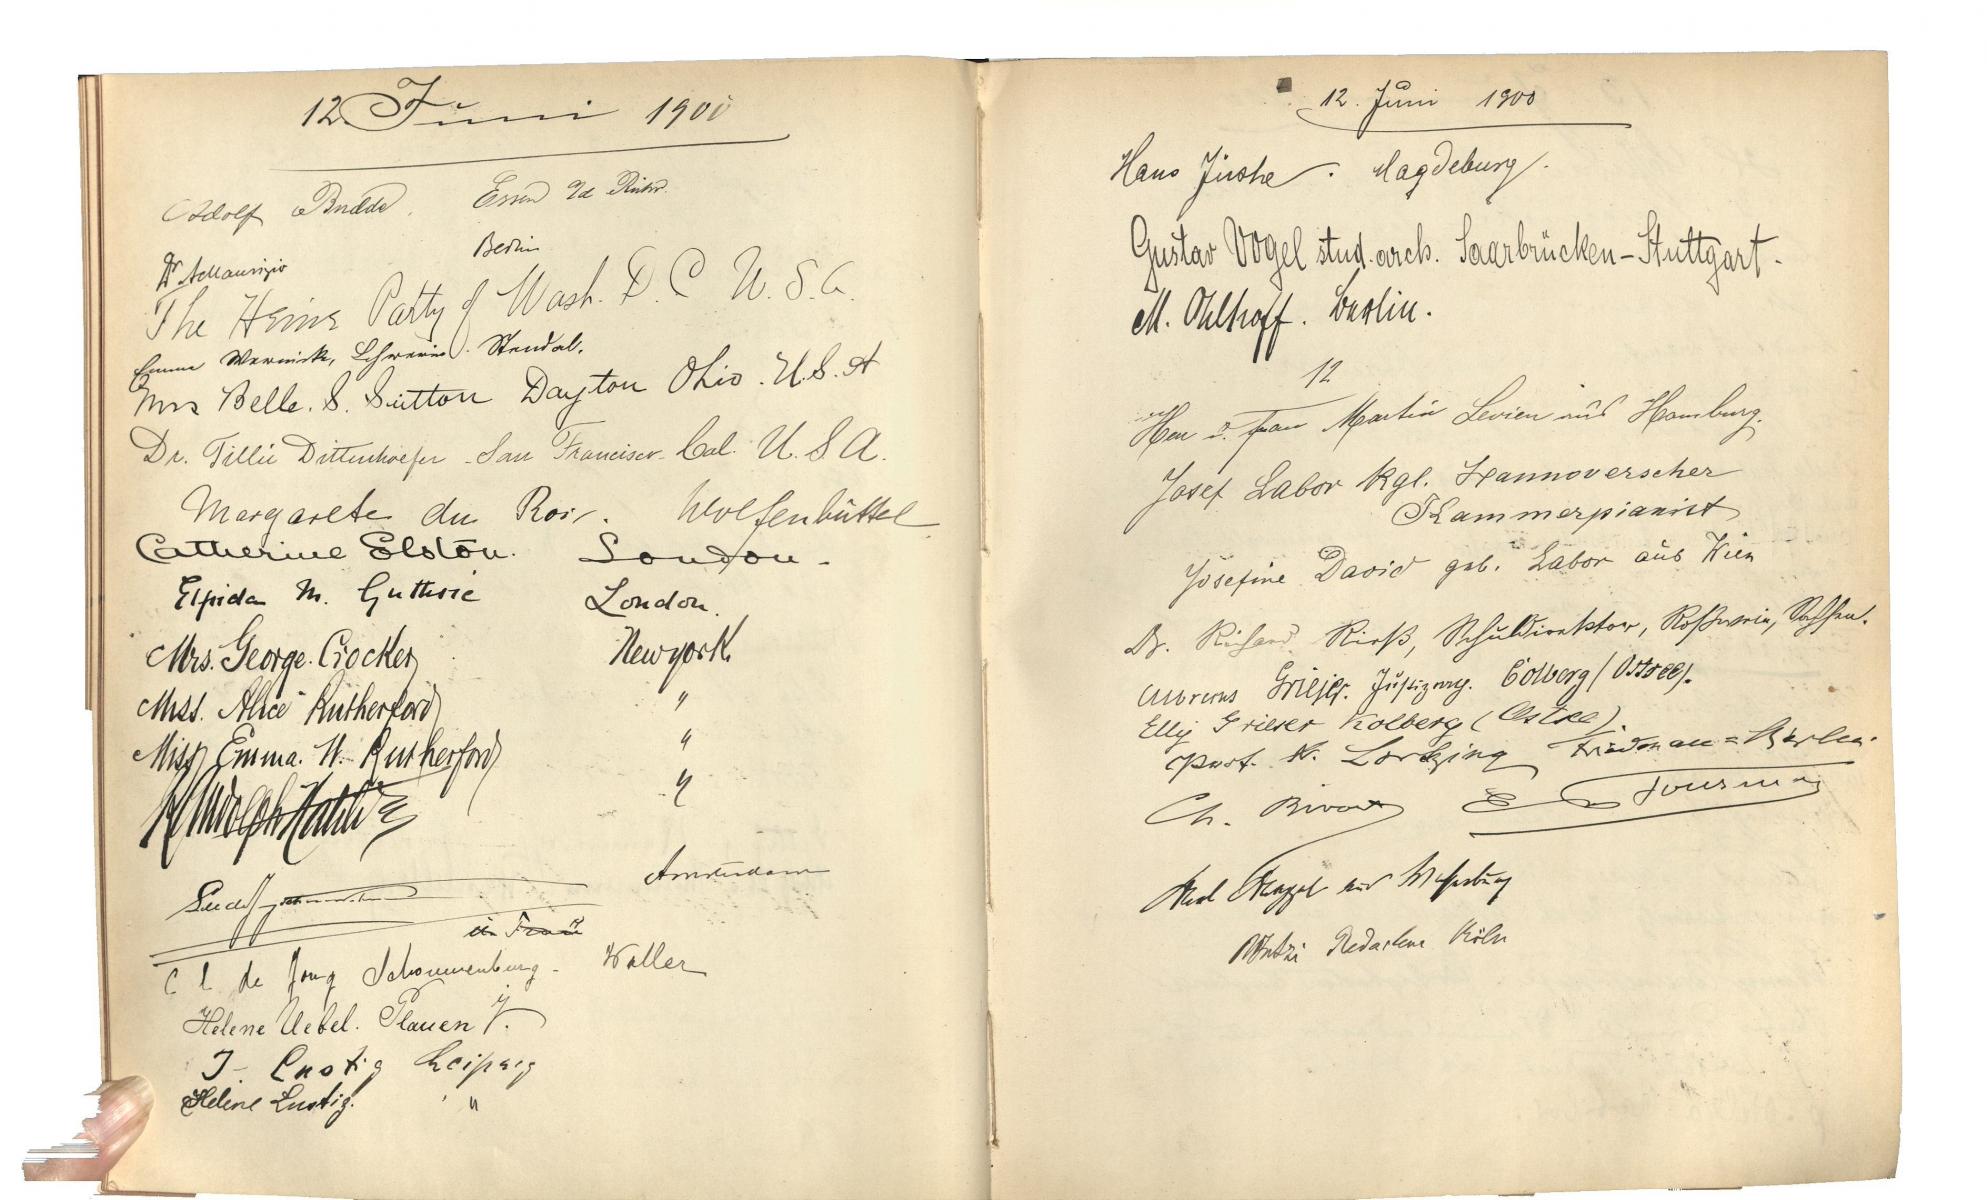 12. Juni 1900
Adolf Budde. Essen
Dr. A Maurizio Berlin
The Heine Party of Wash. D. C U. S. A.
Emma Wernicke, Schwerin. Stendal.
Mrs Belle. S. Sutton Dayton Ohio. U. S. A
Dr. Tillie Dittenhoefer - San Francisco - Cal. U. S. A.
Margarete du Roi. Wolfenbüttel
Catherine Elston. London.
Elpida M. Guthrie London.
Mrs. George. Crocker New york.
Miss. Alice Rutherford "
Miss Emma. W. Rutherford "
"
Amsterdam
u. Frau
C l de Jong Schouwenburg - Waller
Helene Uebel. Plauen V.
J. Lustig Leipzig
Helene Lustig. "
12. Juni 1900
Hans Magdeburg.
Gustav Vogel stud. arch. Saarbrücken - Stuttgart.
M. Ohlhoff. Berlin.
12
Herr u. Frau Martin Levien aus Hamburg.
Josef Labor Kgl. Hannoverscher
Kammerpianist
Josefine David geb. Labor aus Wien
Dr. Richard Rieß, Schuldirektor, Roßwein, Sachsen.
Grieser. Colberg (Ostsee).
Elly Grieser Kolberg (Ostsee).
Lortzing Friedenau = Berlin.
Ch.
E
aus
Redakteur Köln